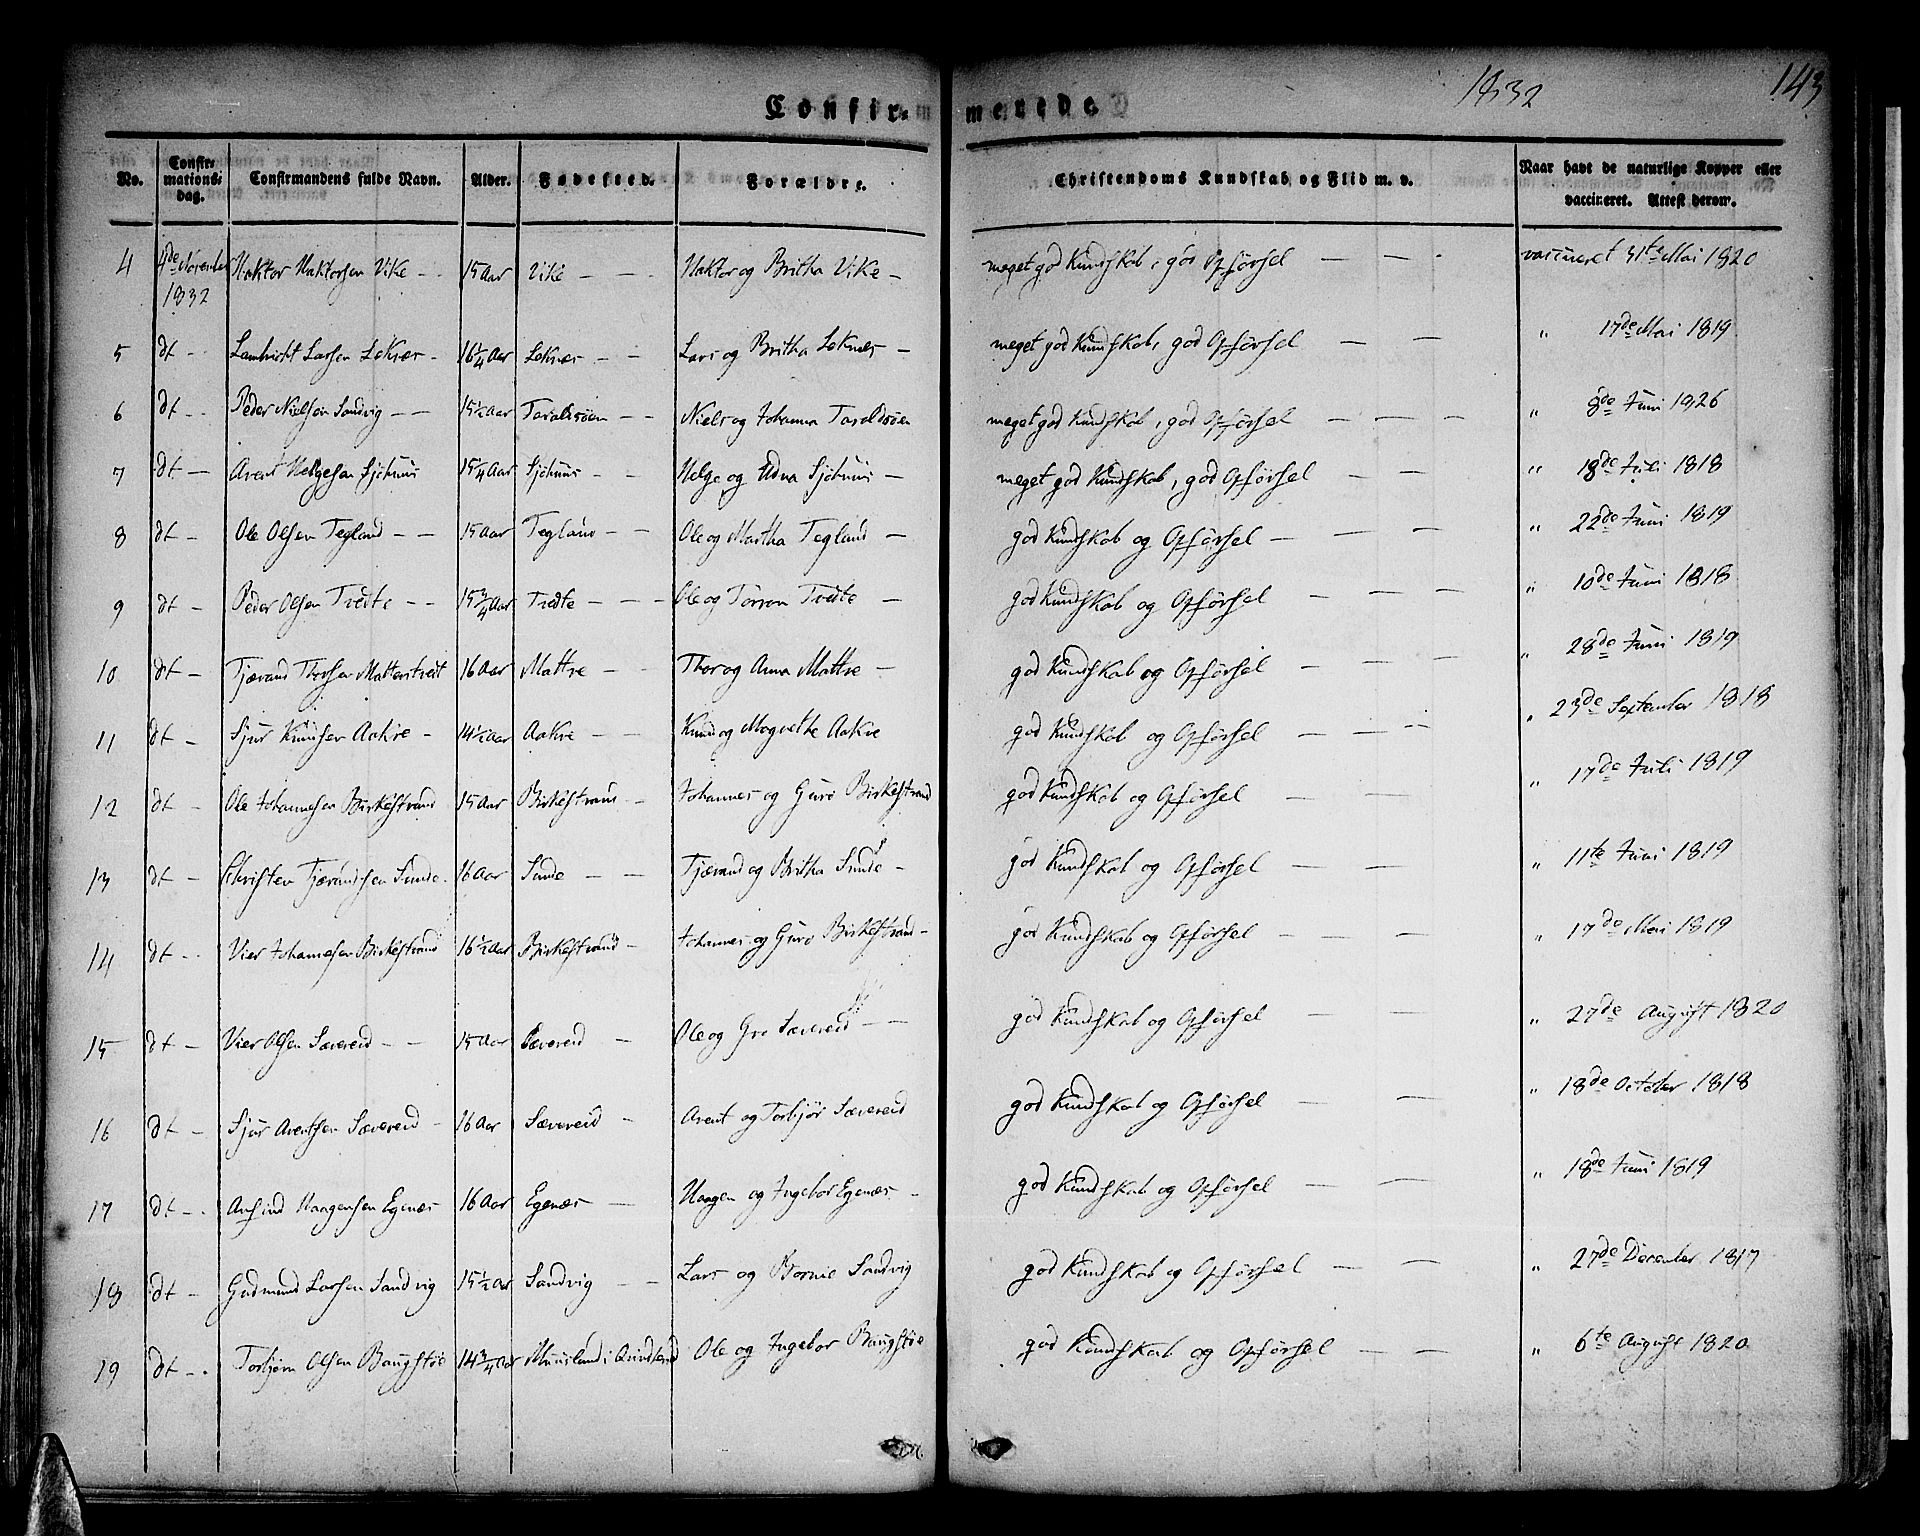 1832
143
Confir-
merede.
No.
Confir-
mations-
dag.
Confirmandens fulde Navn.
Alder.
Fødested.
Forældre.
Christendoms Kundskab og Flid m. v.
Naar havt de naturlige Kopper eller
vaccineret. Attest derom.
4 4de November 1832 Haktor Haktorsen Vike - - 15 Aar Vike - - Haktor og Britha Vike - meget god Kundskab, god Opførsel - - - vaccineret 31te Mai 1820
5 dt - - Lambricht Larsen Leknes - 16¼ Aar Leknæs - - Lars og Britha Leknes - meget god Kundskab, god Opførsel - - - " 17de Mai 1819
6 dt - - Peder Nielsen Sandvig - - 15½ Aar Taraldsøen - - Niels og Johanna Taraldsöen meget god Kundskab, god Opførsel - - - " 8de Juni 1826
7 dt - Arent Helgesen Sjohuus 15¼ Aar Sjohuus - - Helge og Udna Sjohuus - meget god Kundskab, god Opførsel - - - " 18de Juli 1818
8 dt - Ole Olsen Tegland - - 15 Aar Tegland - - Ole og Martha Tegland - god Kundskab og Opførsel - - - - " 22de Juni 1819
9 dt - Peder Olsen Tvedte - - 15¾ Aar Tvedte - - - Ole og Torron Tvedte - god Kundskab og Opførsel - - - " 10de Juni 1818
10 dt - Tjærand Thorsen Matterstvedt 16 Aar Mattre - Thor og Anna Mattre - god Kundskab og Opførsel - - - " 28de Juni 1819
11 dt - Sjur Knudsen Aakre - 14½ Aar Aakre - - Knud og Magrethe Aakre god Kundskab og Opførsel - - - " 23de September 1818
12 dt - Ole Johannesen Birkestrand 15 Aar Birkestrand - Johannes og Guro Birkestrand god Kundskab og Opførsel - - - " 17de Juli 1819
13 dt - Christen Tjærandsen Sunde - 16 Aar Sunde - - Tjærand og Britha Sunde - god Kundskab og Opførsel - - " 11te Juni 1819
14 dt - - Vier Johannesen Birkestrand 16½ Aar Birkestrand - Johannes og Guro Birkestrand - god Kundskab og Opførsel - - " 17de Mai 1819
15 dt - Vier Olsen Sævereid - - 15 Aar Sævereid - Ole og Gro Sævereid - - god Kundskab og Opførsel - - - " 27de August 1820
16 dt - Sjur Arentsen Sævereid - 16 Aar Sævereid - Arent og Torbjör Sævereid god Kundskab og Opførsel - - " 18de October 1818
17 dt - - Anfind Haagensen Egenæs 16 Aar Egenæs - Haagen og Ingebor Egenæs - god Kundskab og Opførsel - - - " 18de Juni 1819
18 dt - Gudmund Larsen Sandvig 15½ Aar Sandvig - - Lars og Sandvig god Kundskab og Opførsel - - " 27de December 1817
19 dt - - Torbjørn Olsen Baugstøe 14¾ Aar i Qvindherred Ole og Ingebor Baugstøe god Kundskab og Opførsel - - " 6te August 1820